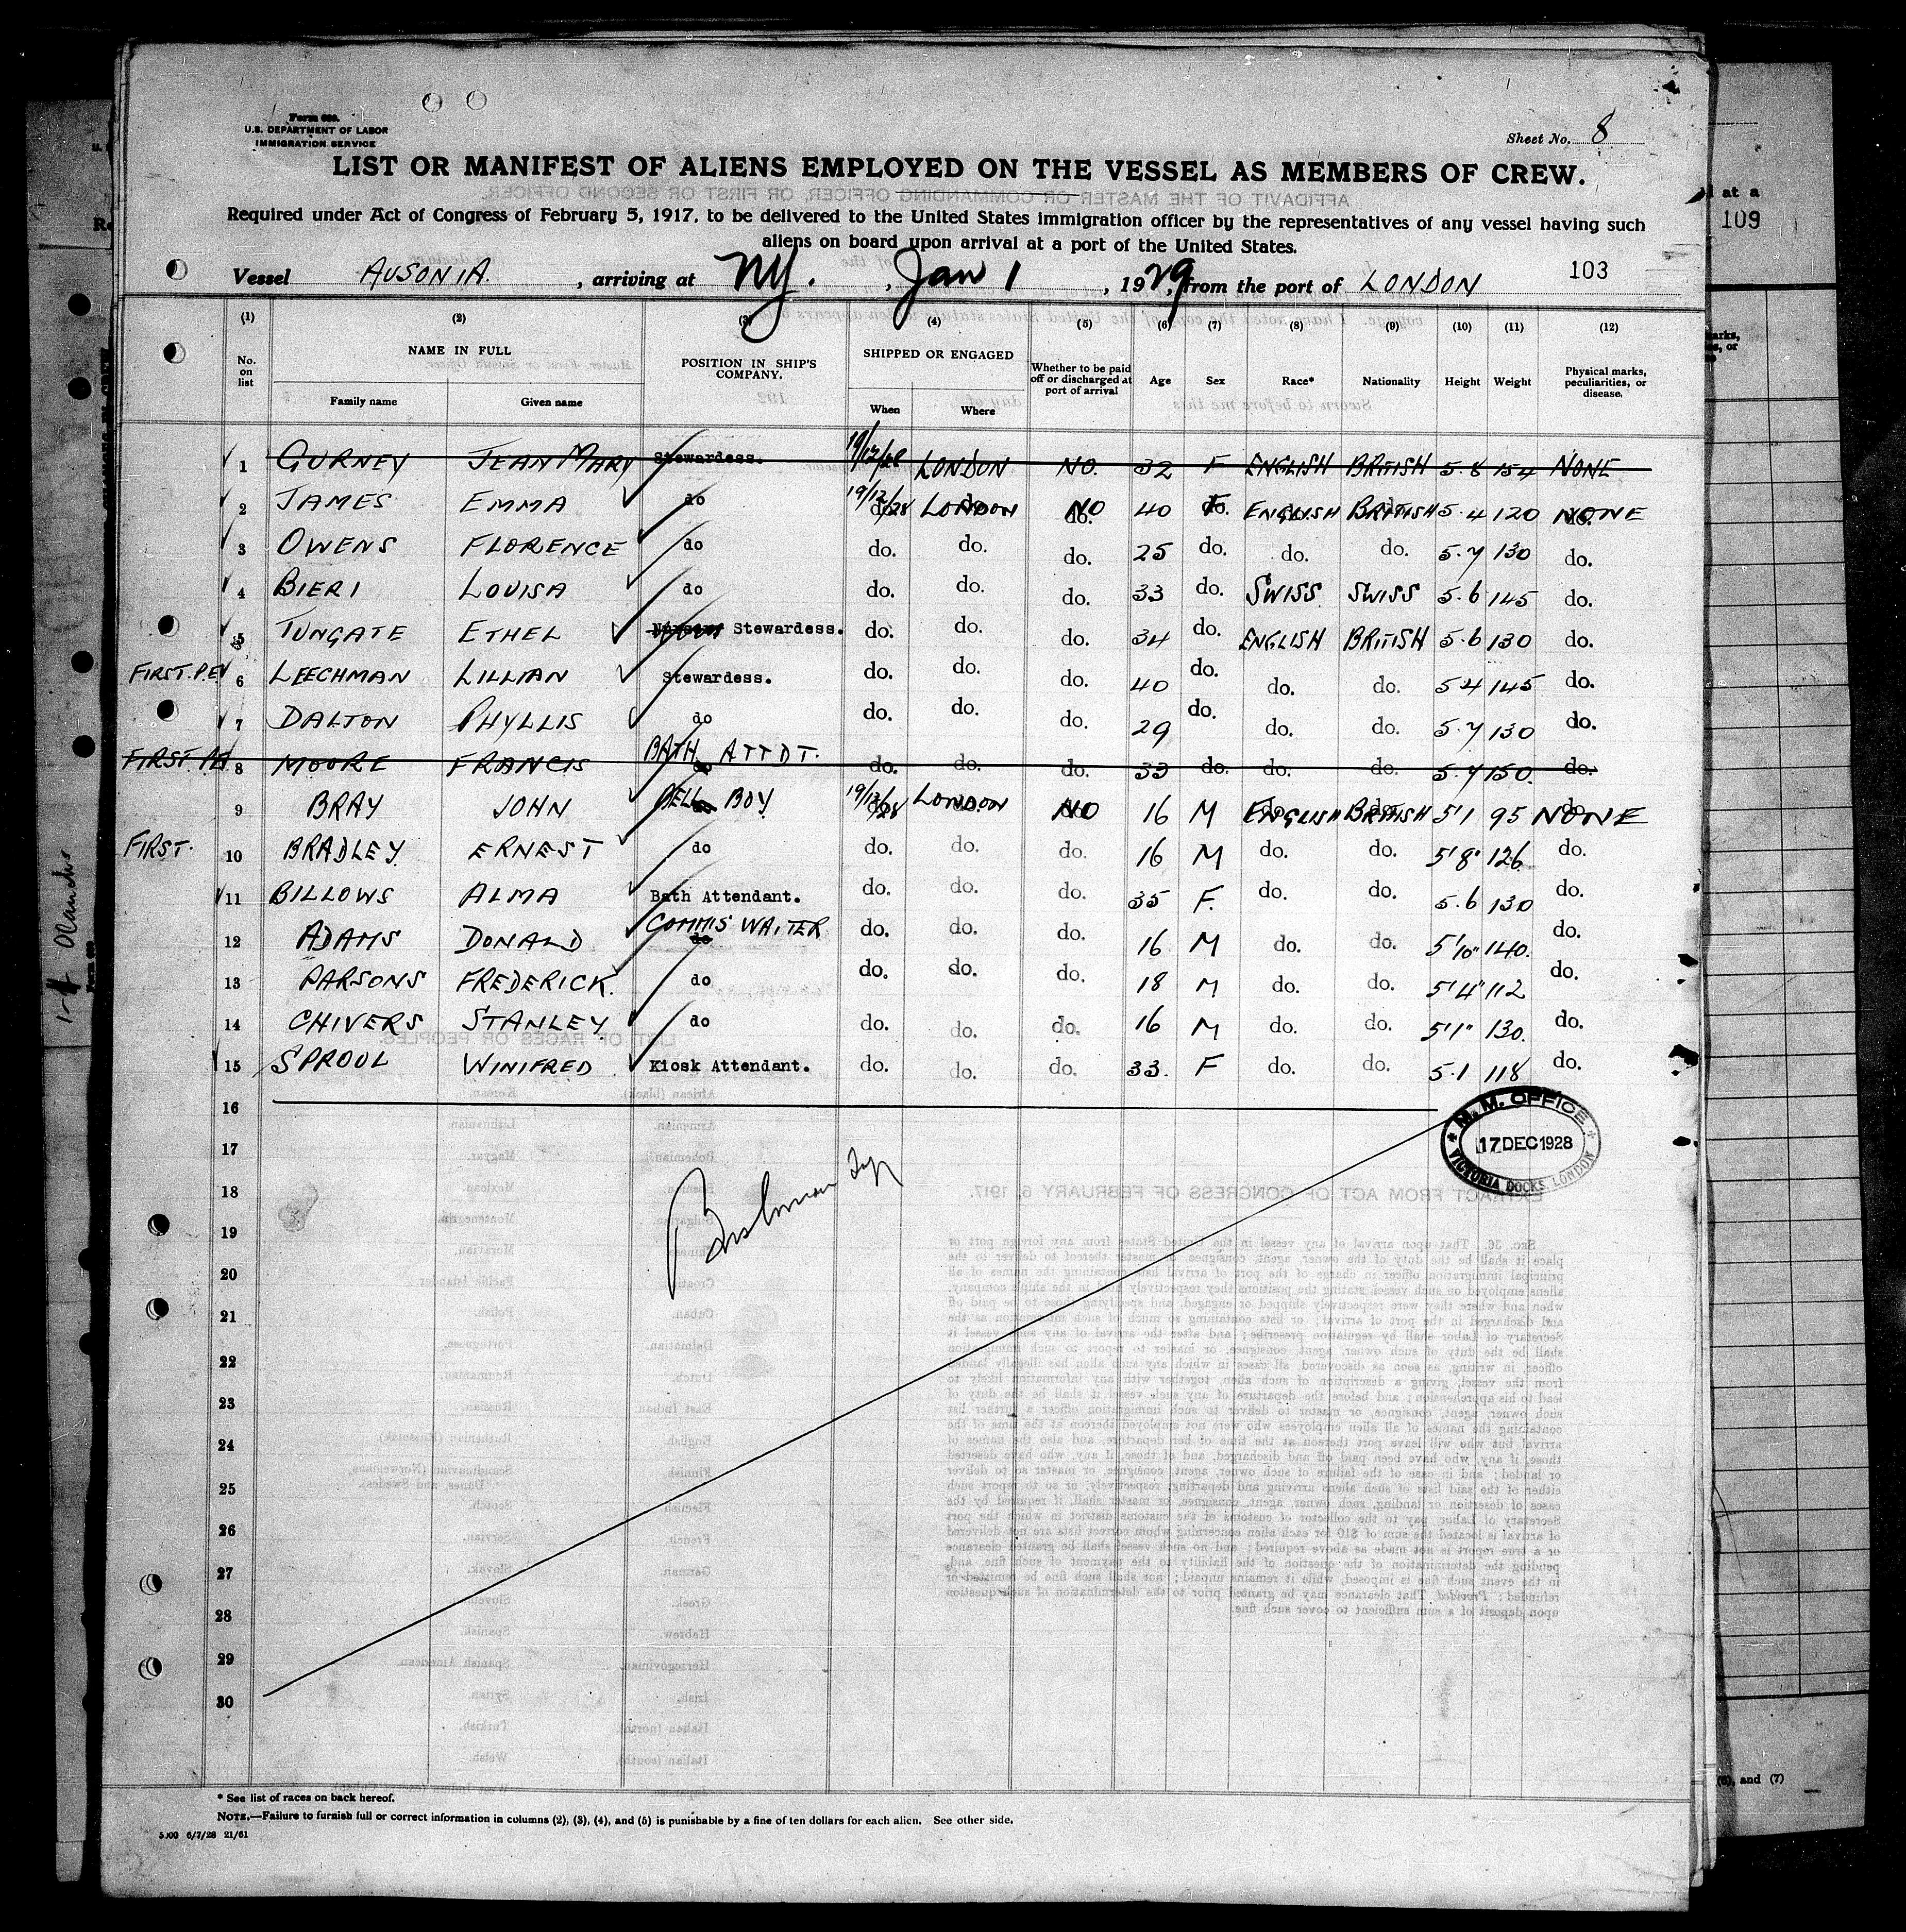 Form 689.
U.S. DEPARTMENT OF LABOR
IMMIGRATION SERVICE
Sheet No. 8
LIST OR MANIFEST OF ALIENS EMPLOYED ON THE VESSEL AS MEMBERS OF CREW.
Required under Act of Congress of February 5, 1917, to be delivered to the United States immigration officer by the representatives of any vessel having such
aliens on board upon arrival at a port of the United States.
103
Vessel AUSONIA. , arriving at NY. , Jan 1 , 1929, from the port of LONDON
(1) (2) (3) (4) (5) (6) (7) (8) (9) (10) (11) (12)
No. on list NAME IN FULL Family name Given name POSITION IN SHIP'S COMPANY. SHIPPED OR ENGAGED When Where Whether to be paid off or discharged at port of arrival Age Sex Race* Nationality Height Weight Physical marks, peculiarities, or disease.
1 GURNEY JEAN MARY Stewardess. 19/12/28 LONDON NO. 32 F ENGLISH BRITISH 5.8 154 NONE
2 JAMES EMMA do 19/12/28 LONDON NO 40 F ENGLISH BRITISH 5.4 120 NONE
3 OWENS FLORENCE do do. do. do. 25 do. do. do. 5.7 130 do.
4 BIERI LOUISA do do. do. do. 33 do. SWISS SWISS 5.6 145 do.
5 TUNGATE ETHEL Stewardess. do. do. do. 34 do. ENGLISH BRITISH 5.6 130 do.
FIRST. 6 LEECHMAN LILLIAN Stewardess. do. do. do. 40 do. do. do. 5.4 145 do.
7 DALTON PHYLLIS do do. do. do. 29 do. do. do. 5.7 130 do.
FIRST. 8 MOORE FRANCIS BATH ATTDT. do. do. do. 33 do. do. do. 5.7 150. do.
9 BRAY JOHN BELL BOY 19/12/28 LONDON NO 16 M ENGLISH BRITISH 5'1 95 NONE
FIRST. 10 BRADLEY. ERNEST do do. do. do. 16 M do. do. 5'8" 126. do.
11 BILLOWS ALMA Bath Attendant. do. do. do. 35 F. do. do. 5.6 130 do.
12 ADAMS DONALD COMMIS WAITER do. do. do. 16 M do. do. 5'10" 140. do.
13 PARSONS FREDERICK. do do. do. do. 18 M do. do. 5'4" 112 do.
14 CHIVERS STANLEY do do. do. do. 16 M do. do. 5'1" 130. do.
15 SPROUL WINIFRED Kiosk Attendant. do. do. do. 33. F do. do. 5.1 118 do.
16
M. M. OFFICE
17 DEC 1928
VICTORIA DOCKS LONDON
17
18
19
20
21
22
23
24
25
26
27
28
29
30
* See list of races on back hereof.
NOTE.—Failure to furnish full or correct information in columns (2), (3), (4), and (5) is punishable by a fine of ten dollars for each alien. See other side.
5000 6/7/28 21/61
at a
109
and (7)